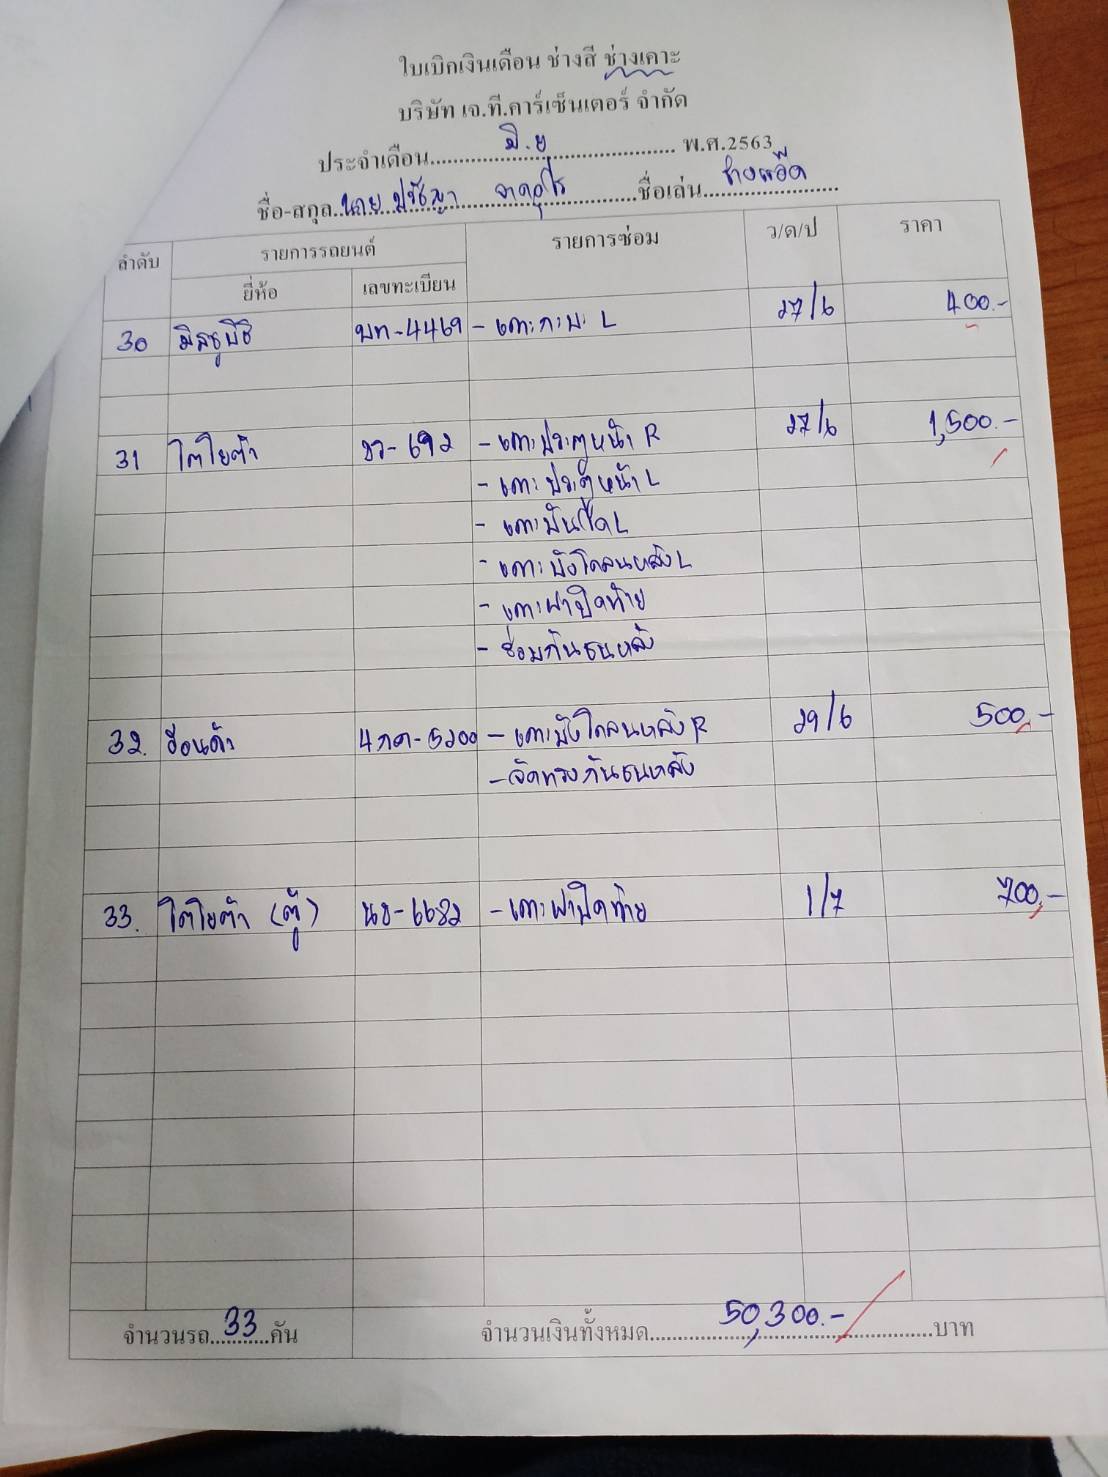 ใบเบิกเงินเดือน ช่างสี ช่างเคาะ
บริษัท เจ.ที.คาร์เซ็นเตอร์ จำกัด
ประจำเดือน มิ.ย พ.ศ.2563
ชื่อ-สกุล นาย ปรัชญา ชื่อเล่น
ลำดับ รายการรถยนต์ รายการซ่อม ว/ด/ป ราคา
ยี่ห้อ เลขทะเบียน
30 มิตซูบิชิ บท-4469 - เคาะกะบะ L 27/6 400.-
31 โตโยต้า 692 - เคาะประตูหน้า R 27/6 1,500.-
- เคาะประตูหน้า L
- เคาะบันได L
- เคาะบังโคลนหลัง L
- เคาะฝาปิดท้าย
- ซ่อมกันชนหลัง
32. ฮอนด้า 4กค-5200 - เคาะบังโคลนหลัง R 29/6 500.-
- จัดทรงกันชนหลัง
33. โตโยต้า (ตู้) นข-6682 - เคาะฝาปิดท้าย 1/7 700.-
จำนวนรถ 33 คัน จำนวนเงินทั้งหมด 50,300.- บาท